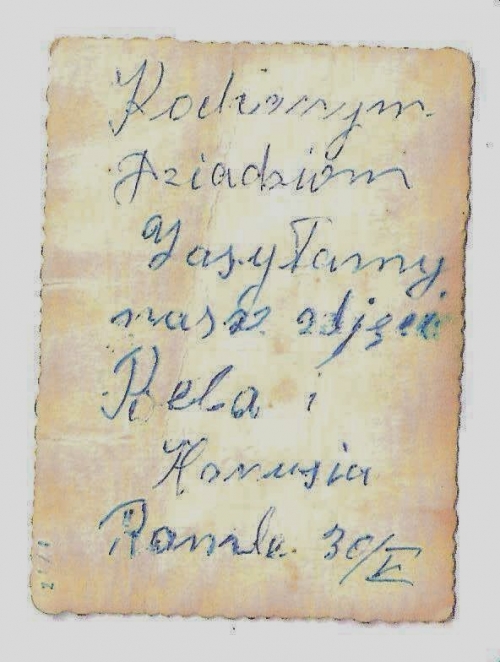 Kochanym
Dziadziom
Zasyłamy
nasze zdjęcie
i
Hanusia
Ramle 30/V